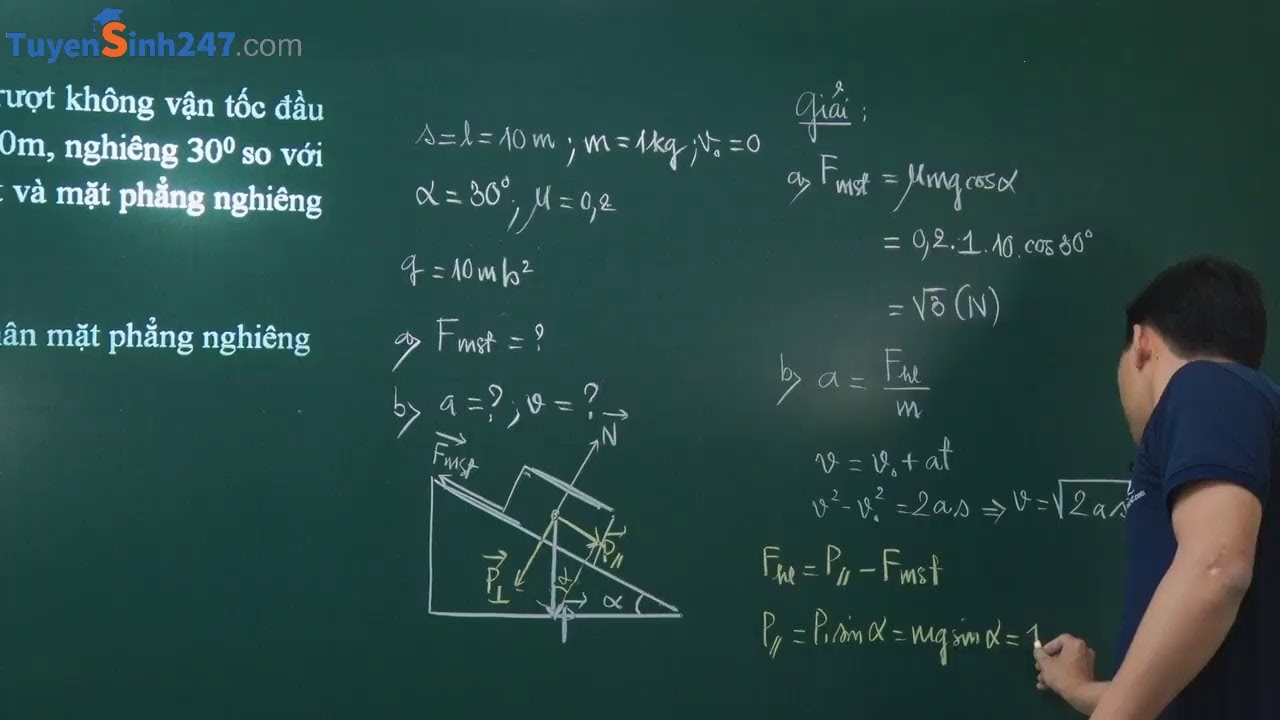 TuyenSinh247.com
rượt không vận tốc đầu
0m, nghiêng 30⁰ so với
và mặt phẳng nghiêng
ân mặt phẳng nghiêng
s=l=10m; m=1kg; v₀=0
α=30°; μ=0,2
g=10m/s²
a) Fmst = ?
b) a=?; v=?
N
Fmst
P//
P⊥
α
P
α
Giải:
a) Fmst = μmgcosα
= 0,2.1.10.cos30°
= √3 (N)
b) a = Fhl/m
v = v₀ + at
v² - v₀² = 2as ⇒ v = √2as
Fhl = P// - Fmst
P// = P.sinα = mgsinα = 1